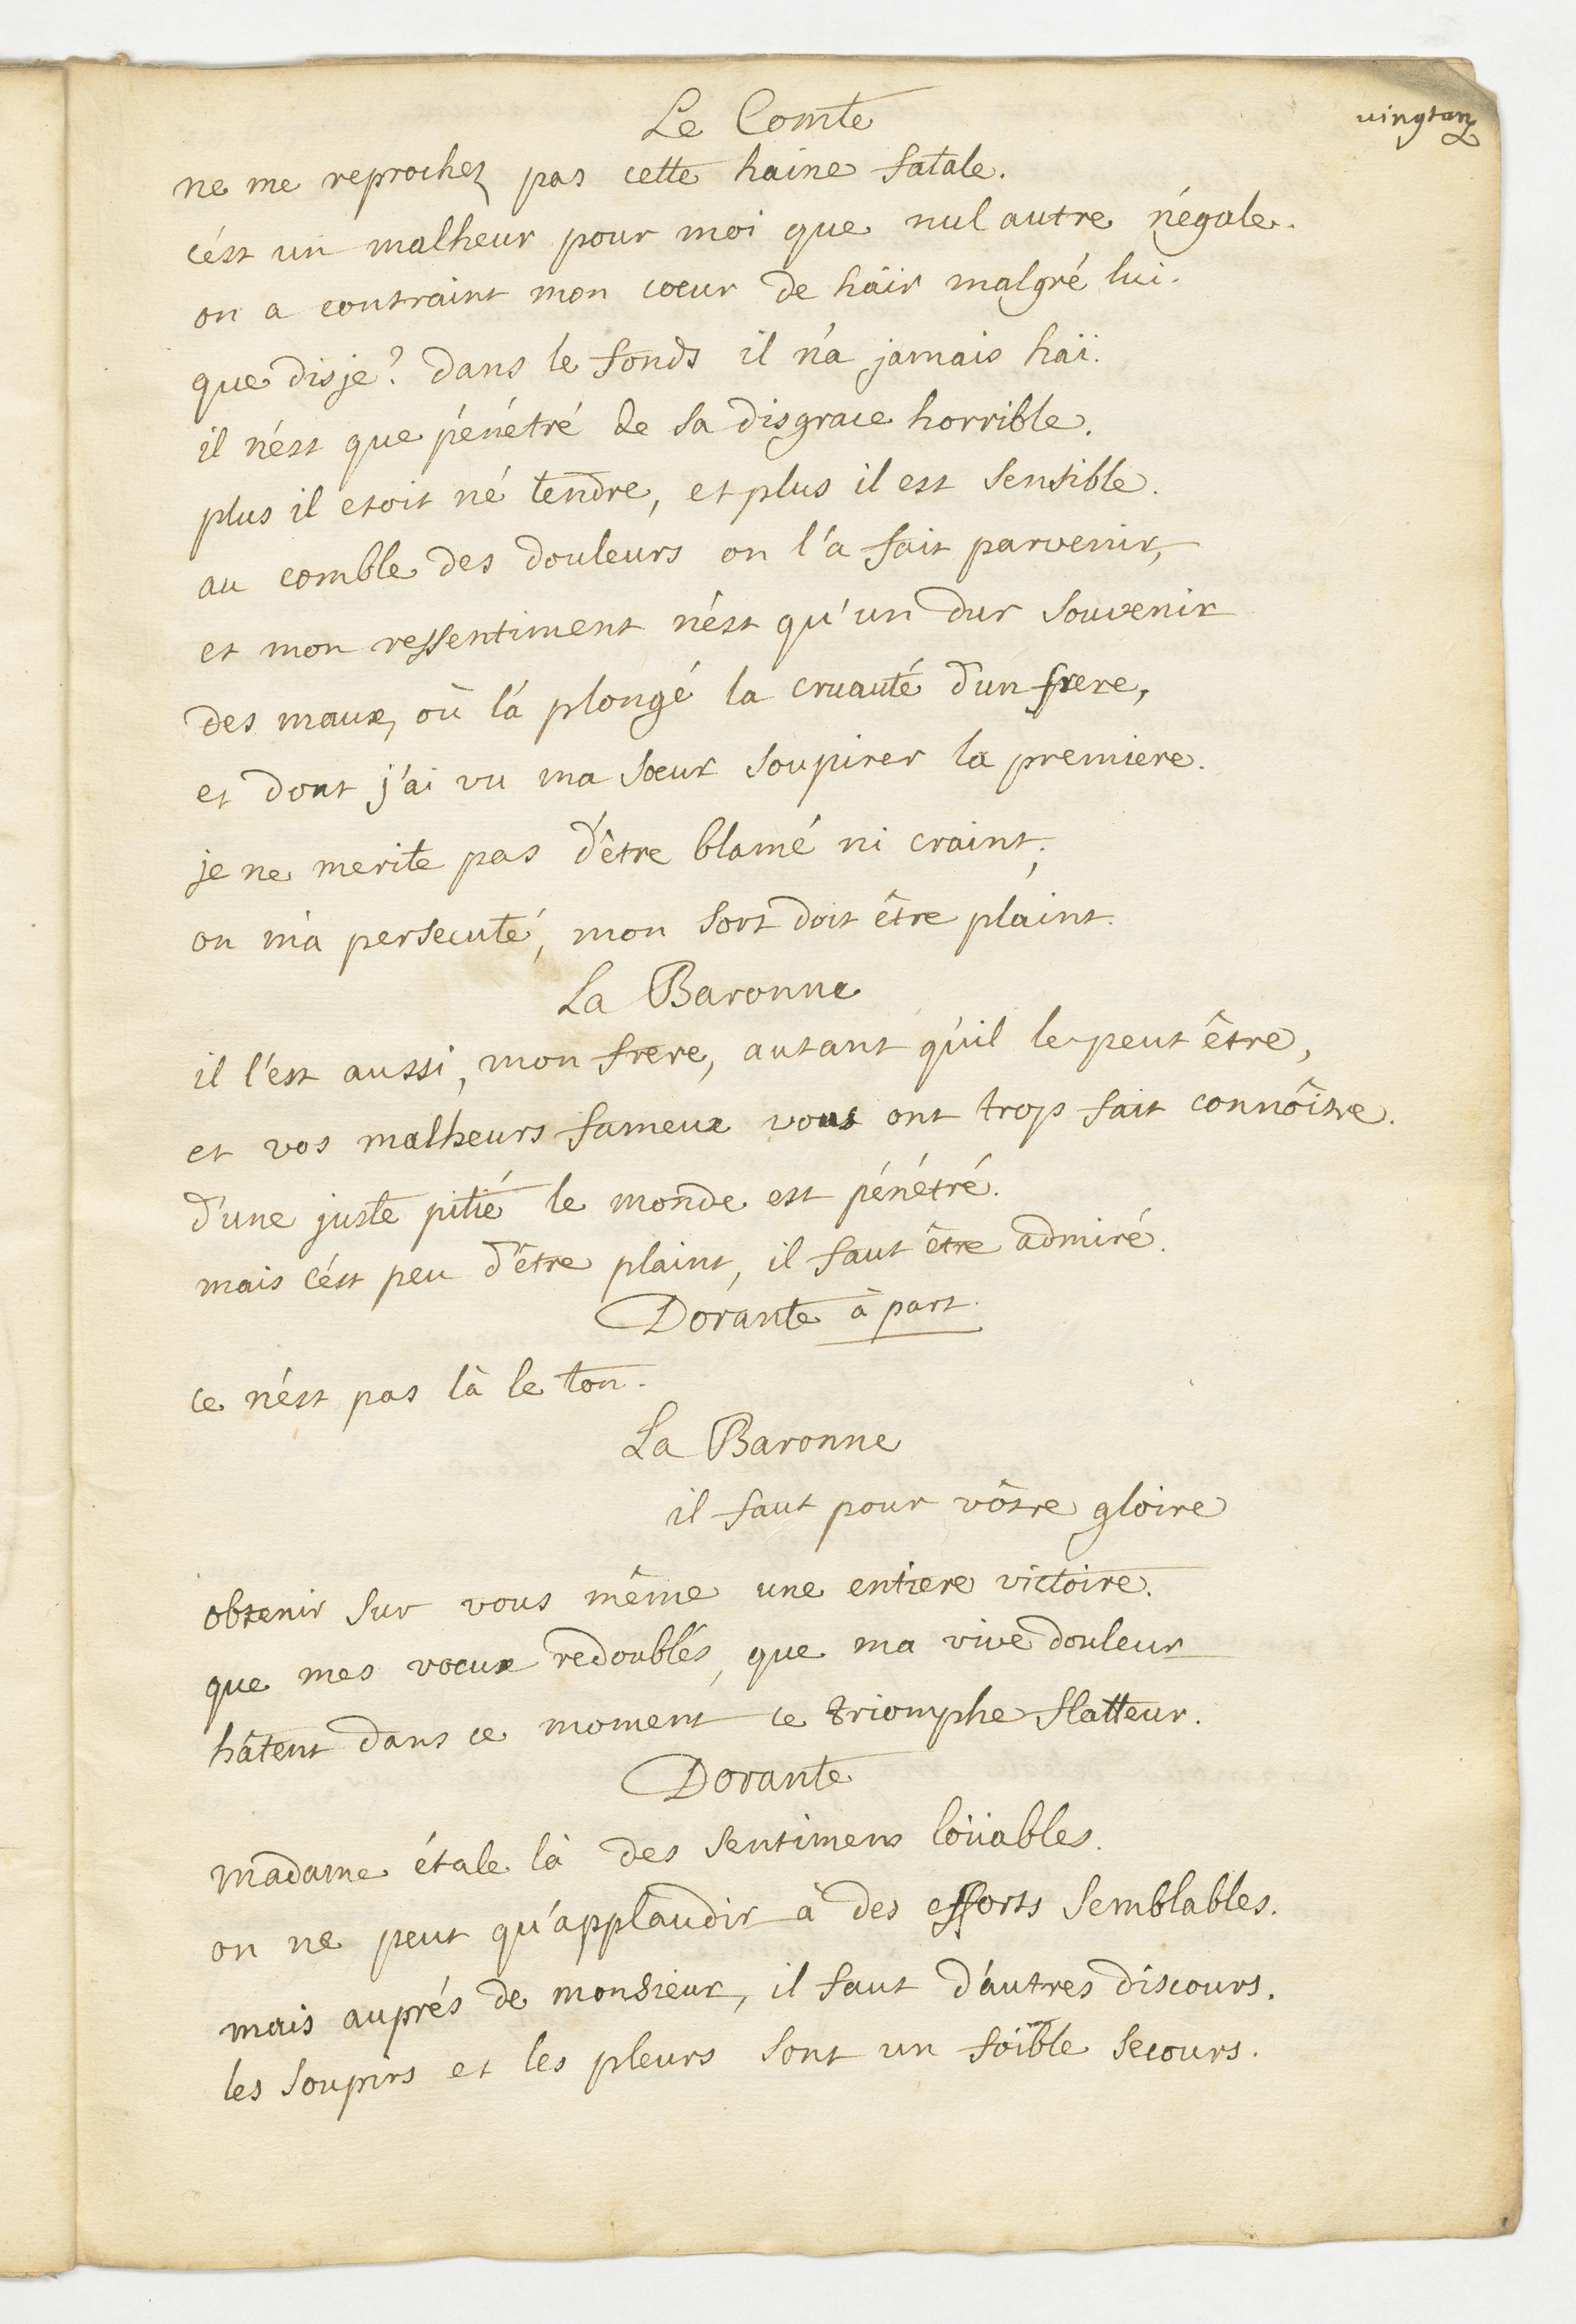 Le Comte
ne me reprochez pas cette haine fatale.
c'est un malheur pour moi que nul autre n'égale.
on a contraint mon coeur de haïr malgré lui.
que dis je? dans le fonds il n'a jamais haï.
il n'est que pénétré de sa disgrace horrible.
plus il etoit né tendre, et plus il est sensible.
au comble des douleurs on l'a fait parvenir,
et mon ressentiment n'est qu'un dur souvenir
des maux, où l'a plongé la cruauté d'un frere,
et dont j'ai vu ma soeur soupirer la premiere.
je ne merite pas d'être blamé ni craint;
on m'a persecuté, mon sort doit être plaint.
La Baronne
il l'est aussi, mon frere, autant qu'il le peut être,
et vos malheurs fameux vous ont trop fait connôitre.
d'une juste pitié le monde est pénétré.
mais c'est peu d'être plaint, il faut être admiré.
Dorante à part.
ce n'est pas là le ton.
La Baronne
il faut pour vôtre gloire
obtenir sur vous même une entiere victoire.
que mes voeux redoublés, que ma vive douleur
hâtent dans ce moment ce triomphe flatteur.
Dorante
madame étale là des sentimens loüables.
on ne peut qu'applaudir à des efforts semblables.
mais auprés de monsieur, il faut d'autres discours.
les soupirs et les pleurs sont un foible secours.